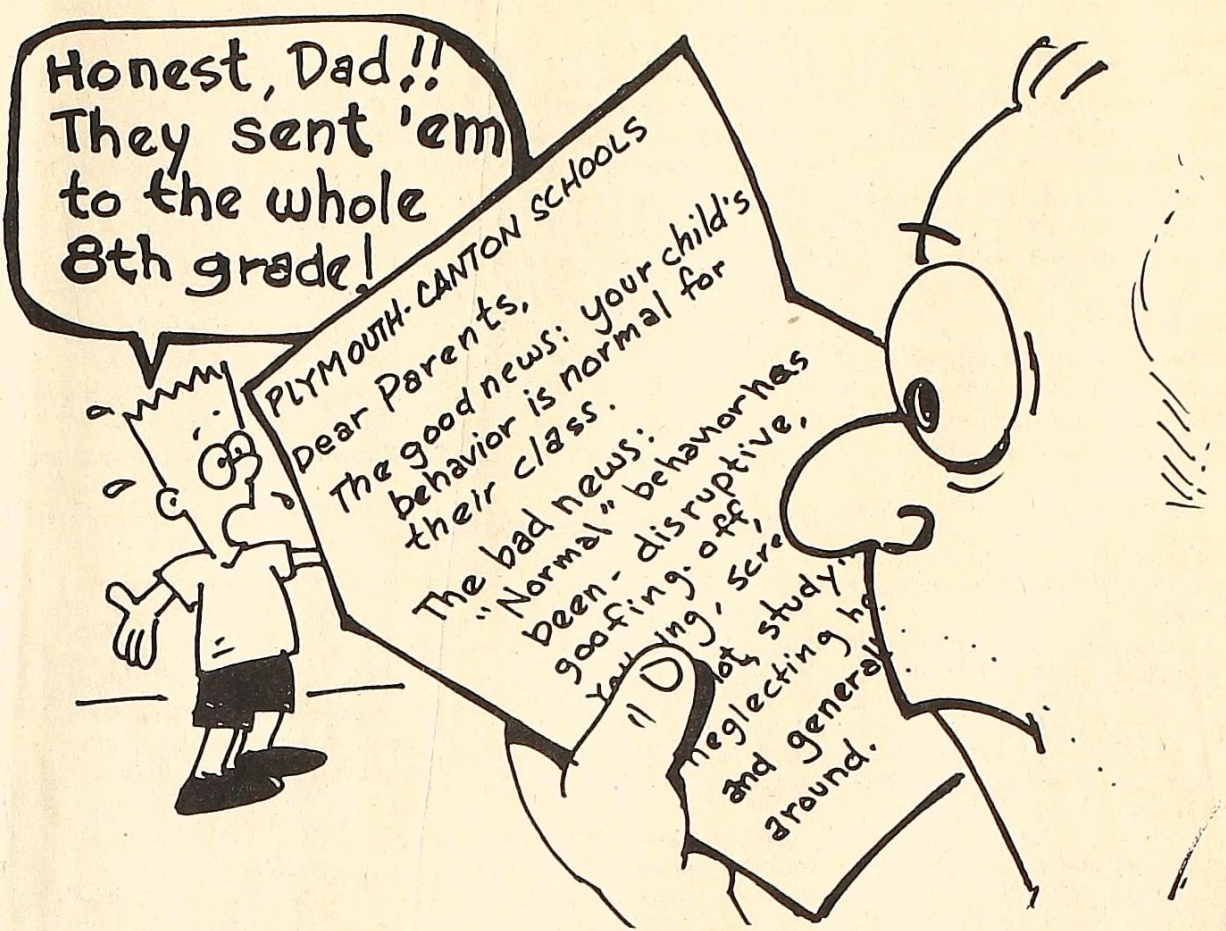 Honest, Dad!!
They sent 'em
to the whole
8th grade!
PLYMOUTH-CANTON SCHOOLS
Dear Parents,
The good news: your child's
behavior is normal for
their class.
The bad news:
"Normal" behavior has
been - disruptive,
goofing-off,
study
neglecting
and
around.